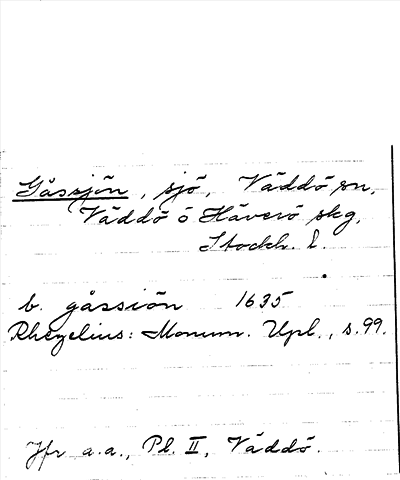 Gåssjön, sjö, Väddö sn,
Väddö ö Häverö skg,
Stockh. l.
b. gåssiön 1635
Rhezelius: Monum. Upl., s. 99.
Jfr a.a., Pl. II, Väddö.